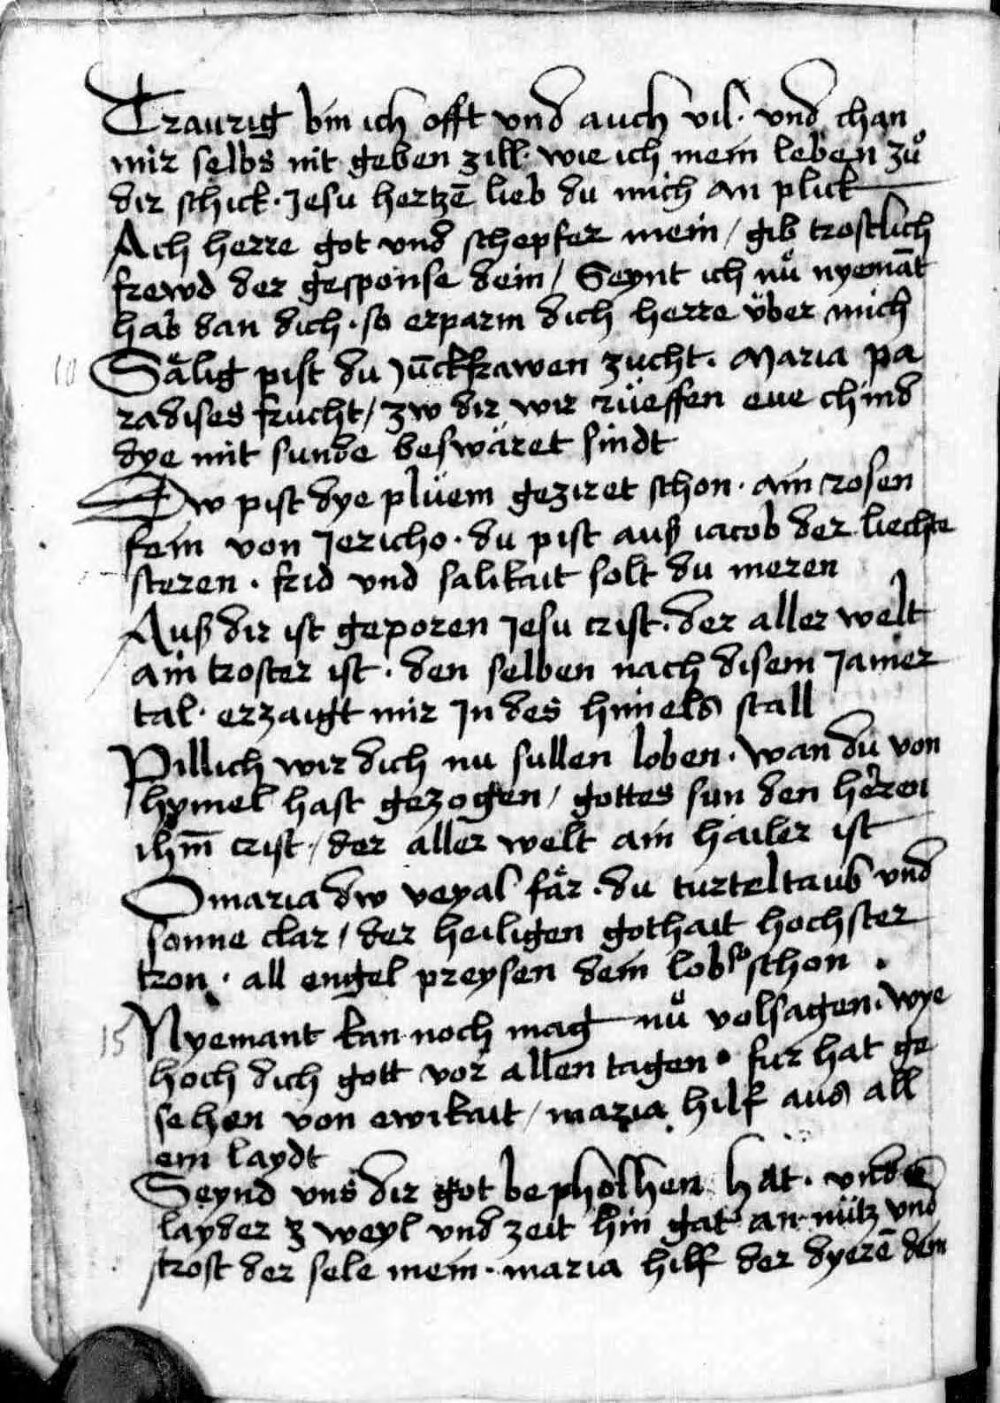 Traurig bin ich offt vnd auch vil · vnd chan
mir selbs nit geben zill · wie ich mein leben zů
dir schick · Jesu hertzē lieb du mich an plick
Ach herre got vnd schepfer mein / gib trostlich
frewd der gesponse dein / Seynt ich nů nyemāt
hab dan dich · so erparm dich herre über mich
10 Sälig pist du Jūckfrawen zucht · Maria pa
radises frucht / zw dir wir rüeffen eue chind
dye mit sunde beswäret sindt
Dw pist dye plüem geziret schon · ain rosen
fein von Jericho · du pist auß iacob der liechte
steren · frid vnd salikait solt du meren
Auß dir ist geporen Jesu crist · der aller welt
ain troster ist · den selben nach disem Jamer
tal · erzaigt mir In des himels stall
Pillich wir dich nu sullen loben · wan du von
hymel hast gezogen / gottes sun den heren
ihm̄ crist / der aller welt ain hailer ist
O maria dw veyal får · du turteltaub vnd
sonne clar / der heiligen gothait hochster
tron · all engel preysen dein lob so schon ·
15 Nyemant kan noch mag nů volsagen · wye
hoch dich gott vor allen tagen · fur hat ge
sehen von ewikait / maria hilf aus all
em laydt
Seynd vns dir got bepholhen hat · vnd
layder z weyl vnd zeit hin gat an nütz vnd
trost der sele mein · maria hilf der dyerē dein